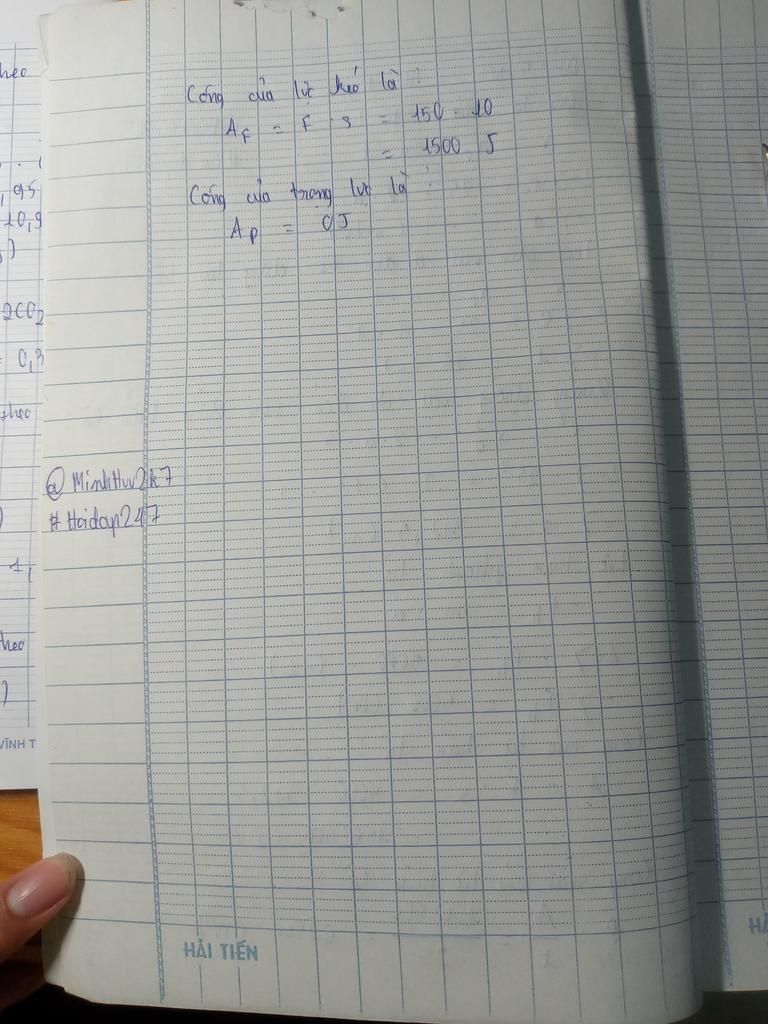 Công của lực kéo là :
A_F = F . s = 150 . 10
= 1500 J
Công của trọng lực là :
A_P = 0J
@MinhHuv2k7
#Hoidap247
HẢI TIẾN
heo
,95
10,9
2CO2
= 0,3
theo
1,
heo
VĨNH T
HẢ